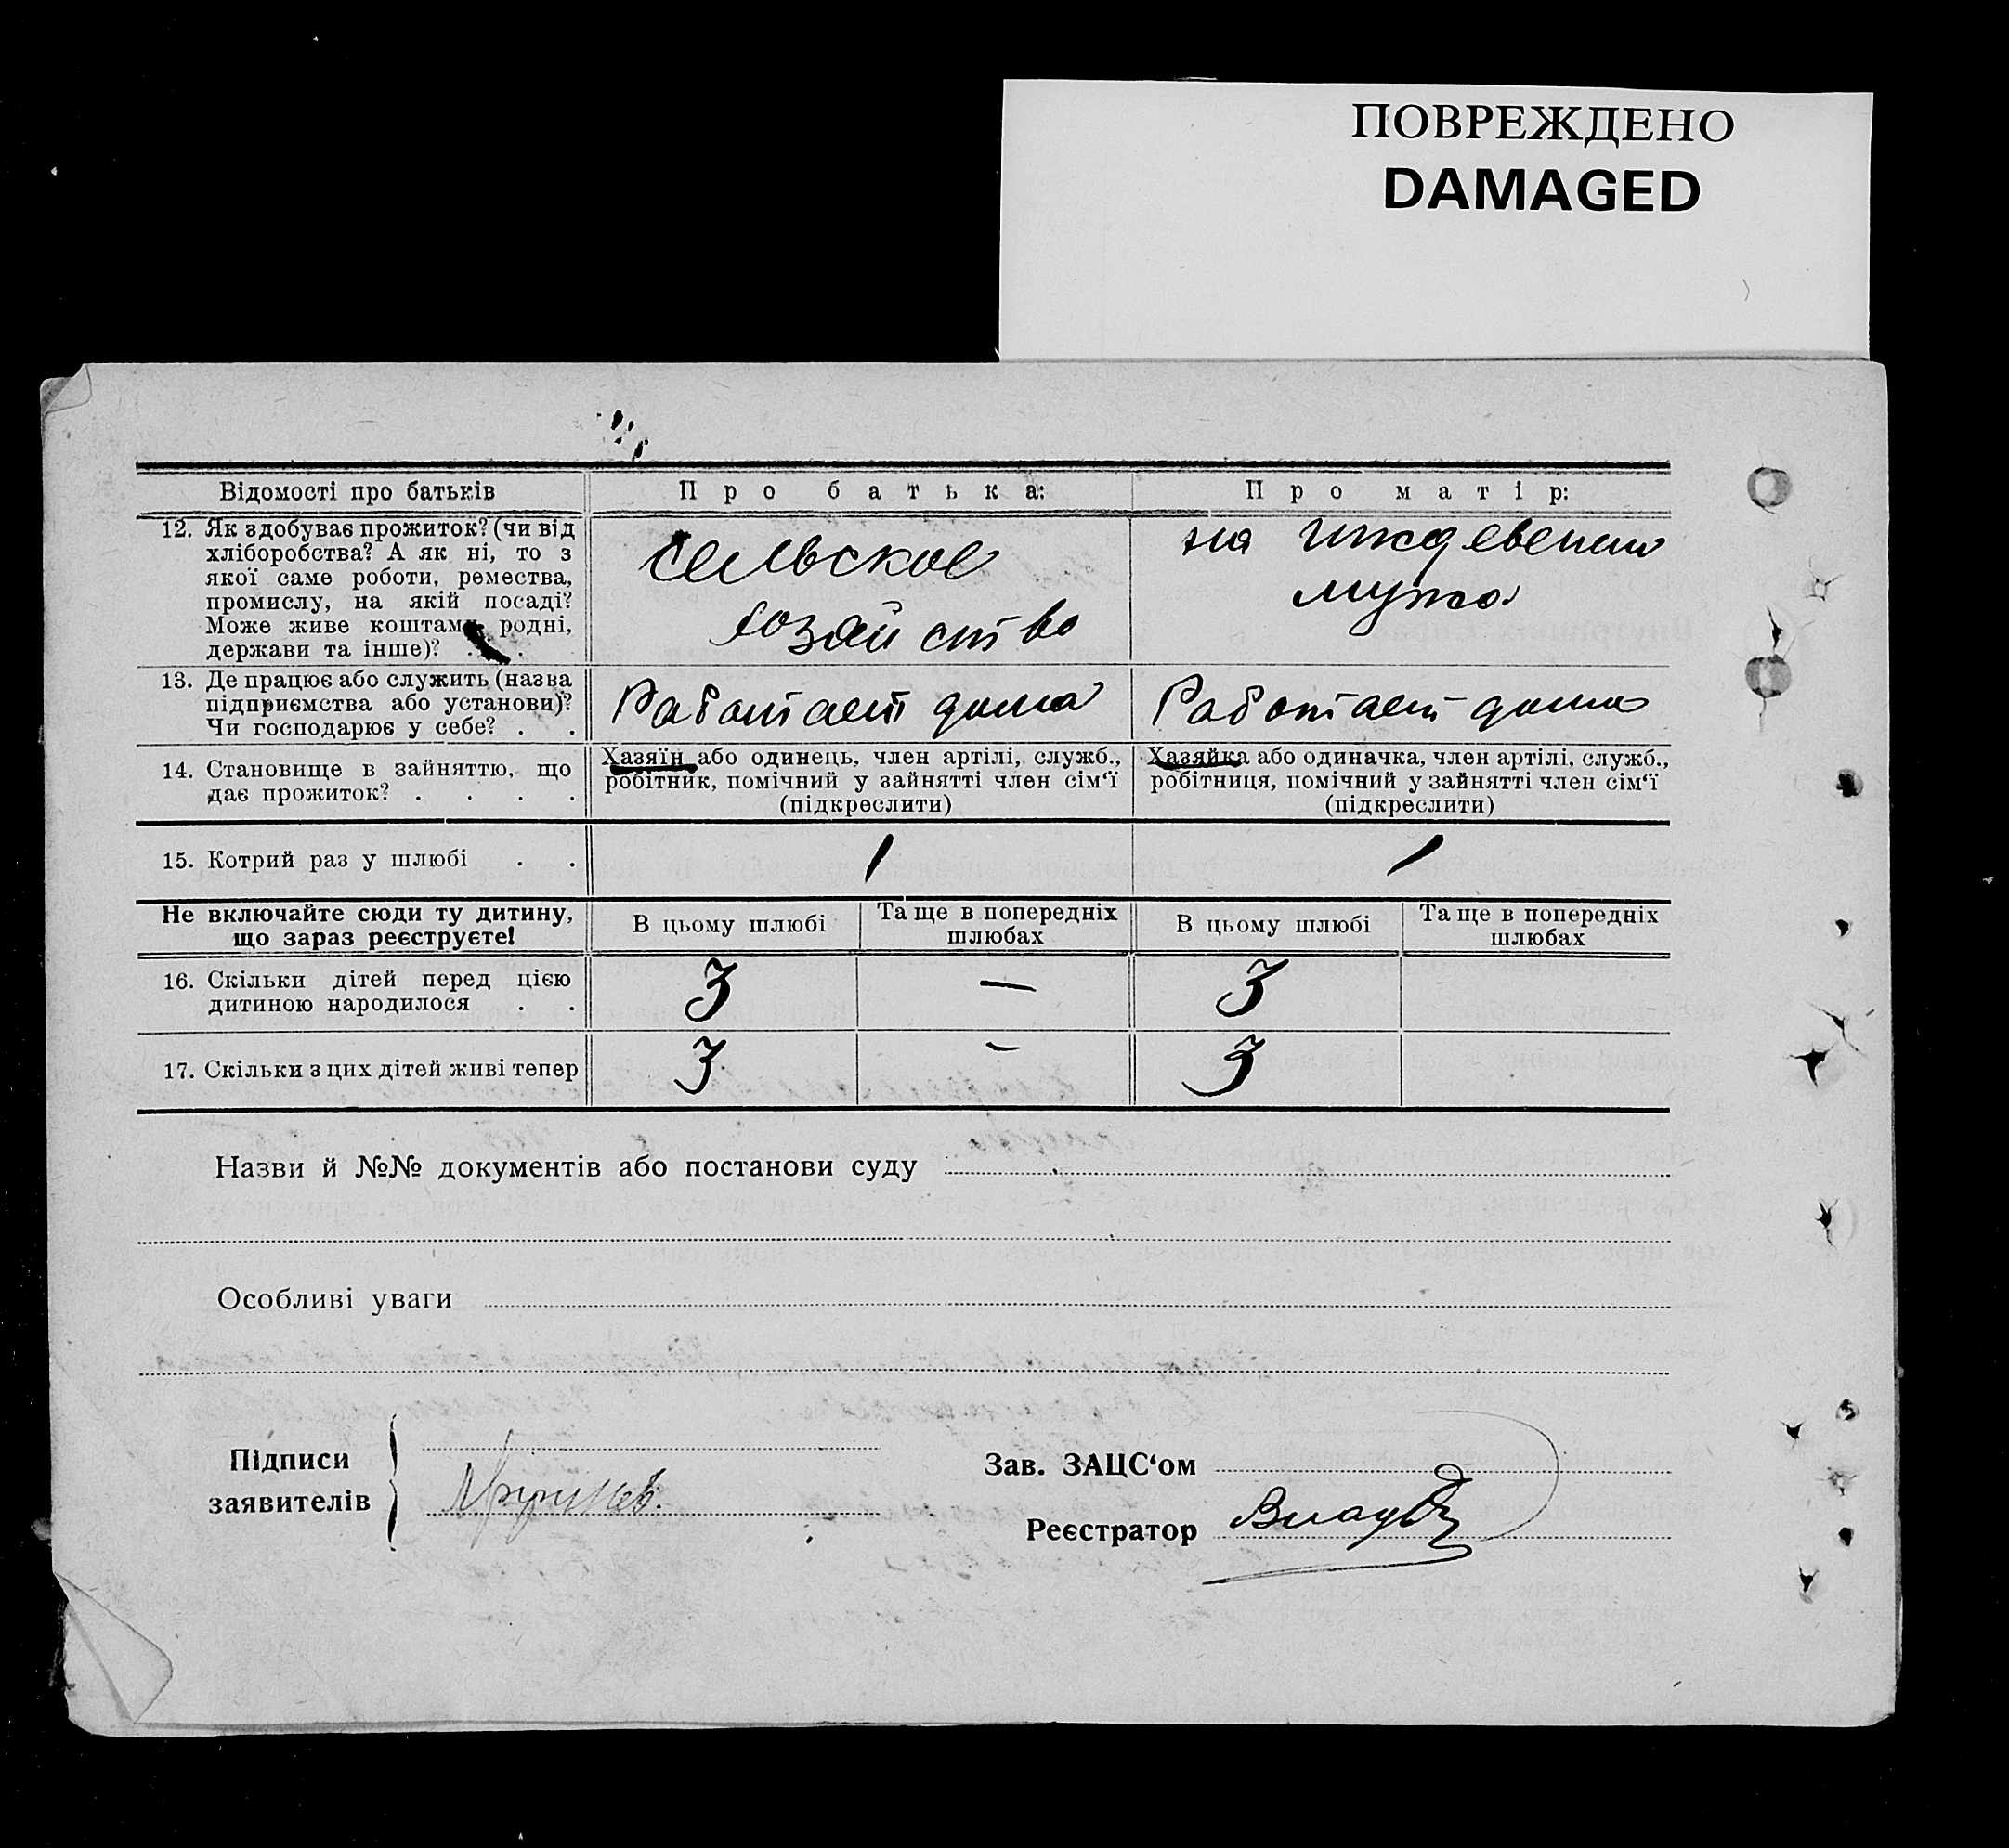 ПОВРЕЖДЕНО
DAMAGED
Відомості про батьків
Про батька:
Про матір:
12. Як здобуває прожиток? (чи від
хліборобства? А як ні, то з
якої саме роботи, ремества,
промислу, на якій посаді?
Може живе коштами родні,
держави та інше)? . . .
Сельское
хозяйство
на иждевении
мужа
13. Де працює або служить (назва
підприємства або установи)?
Чи господарює у себе? . .
Работает дома
Работает дома
14. Становище в зайняттю, що
дає прожиток? . . . .
Хазяїн або одинець, член артілі, служб.,
робітник, помічний у зайнятті член сім‘ї
(підкреслити)
Хазяйка або одиначка, член артілі, служб.,
робітниця, помічний у зайнятті член сім‘ї
(підкреслити)
15. Котрий раз у шлюбі . .
1
1
Не включайте сюди ту дитину,
що зараз реєструєте!
В цьому шлюбі
Та ще в попередніх
шлюбах
В цьому шлюбі
Та ще в попередніх
шлюбах
16. Скільки дітей перед цією
дитиною народилося . .
3
—
3
17. Скільки з цих дітей живі тепер
3
—
3
Назви й №№ документів або постанови суду
Особливі уваги
Підписи
заявителів
Зав. ЗАЦС‘ом
Реєстратор